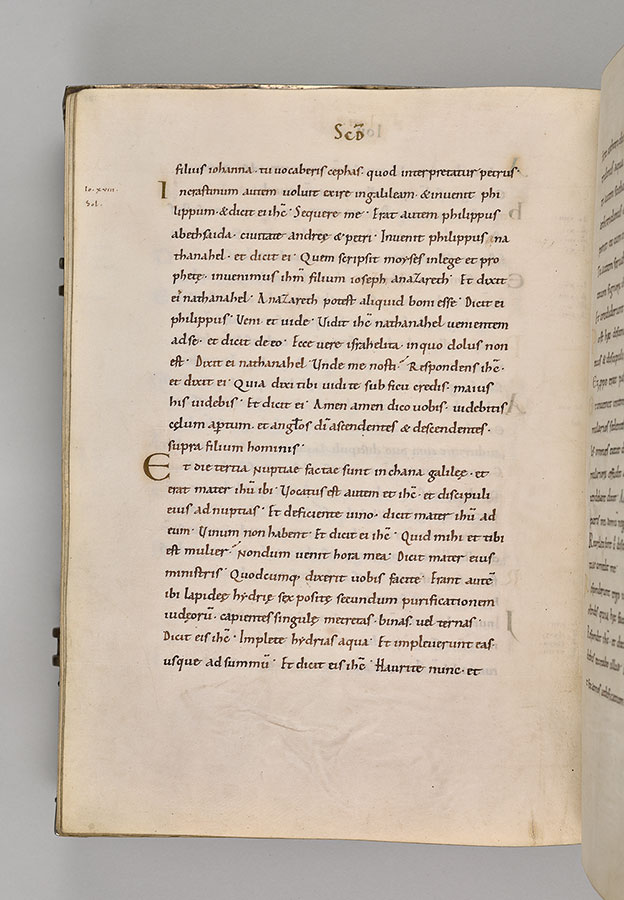 Scd̄
filius iohanna. tu uocaberis cephas. quod interpretatur petrus.
Io. xviii.
Sol.
In crastinum autem uoluit exire ingalileam. & inuenit phi
lippum. & dicit ei ihc̄. Sequere me. Erat autem philippus
abethsaida. ciuitate andreę & petri. Inuenit philippus na
thanahel. et dicit ei. Quem scripsit moyses inlege et pro
phetę. inuenimus ihm̄ filium ioseph anaZareth. Et dixit
ei nathanahel. AnaZareth potest aliquid boni esse. Dicit ei
philippus. Veni et uide. Vidit ihc̄ nathanahel uenientem
adse. et dicit de eo. Ecce vere israhelita. inquo dolus non
est. Dixit ei nathanahel. Unde me nosti. Respondens ihc̄.
et dixit ei. Quia dixi tibi uidi te sub ficu credis. maius
his videbis. Et dicit ei. Amen amen dico vobis. uidebitis
cęlum aptum. et anglos dī ascendentes & descendentes.
supra filium hominis.
Et die tertia nuptiae factae sunt in chana galileę. et
erat mater ihū ibi. Vocatus est autem et ihc̄. et discipuli
eius ad nuptias. Et deficiente uino. dicit mater ihū ad
eum. Vinum non habent. Et dicit ei ihc̄. Quid mihi et tibi
est mulier. Nondum venit hora mea. Dicit mater eius
ministris. Quodcumq; dixerit uobis facite. Erant autē
ibi lapideę hydrię sex positę secundum purificationem
iudęorū. capientes singulę metretas. binas vel ternas.
Dicit eis ihc̄. Implete hydrias aqua. Et impleuerunt eas.
usque ad summū. Et dicit eis ihc̄. Haurite nunc. et